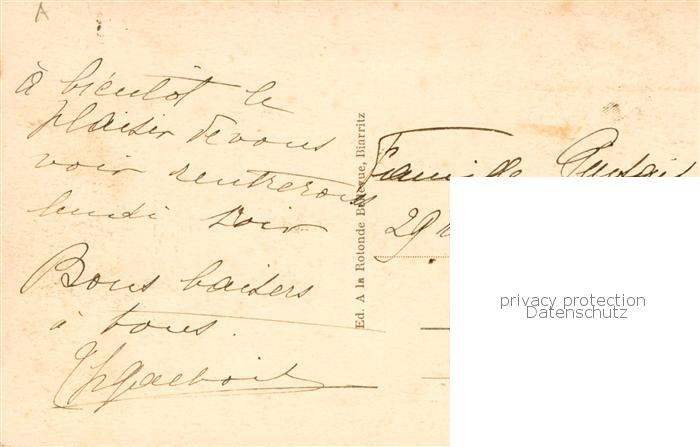 A
à bientôt le
plaisir de vous
voir rentrerons
lundi soir
Bons baisers
à tous.
Ed. A la Rotonde Bellevue, Biarritz
Famille
29
privacy protection
Datenschutz